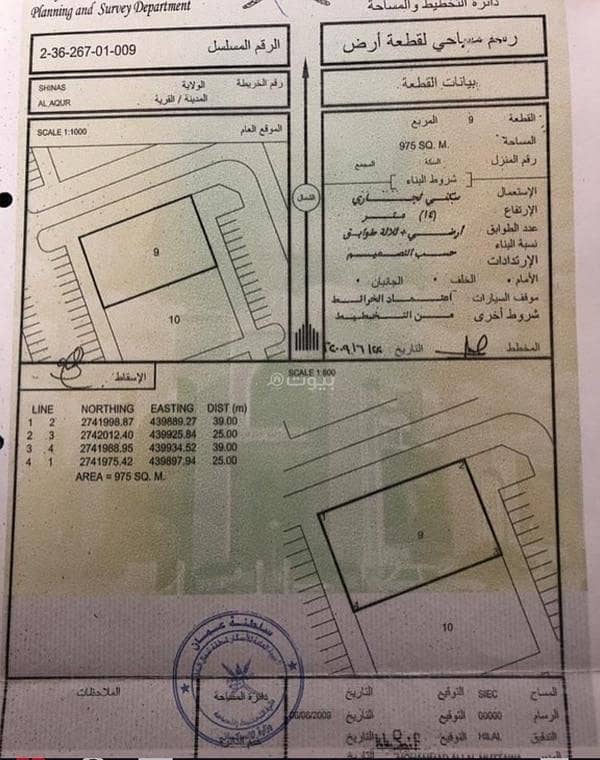 Planning and Survey Department
دائرة التخطيط والمساحة
الرقم المسلسل 2-36-267-01-009
لقطعة أرض
رقم الخريطة
الولاية SHINAS
المدينة / القرية AL AQUR
بيانات القطعة
SCALE 1:1000 الموقع العام
9
10
القطعة 9 المربع
المساحة 975 SQ. M.
رقم المنزل السكة المجمع
شروط البناء
الإستعمال سكني تجاري
الإرتفاع (14) متر
عدد الطوابق أرضي + ثلاثة طوابق
نسبة البناء حسب التصميم
الإرتدادات
الأمام الخلف الجانبان
موقف السيارات اعتماد الخرائط
شروط أخرى من التخطيط
المخطط التاريخ
الشمال
الإسقاط
SCALE 1:500
بيوت
LINE NORTHING EASTING DIST (m)
1 2 2741998.87 439889.27 39.00
2 3 2742012.40 439925.84 25.00
3 4 2741988.95 439934.52 39.00
4 1 2741975.42 439897.94 25.00
AREA = 975 SQ. M.
9
10
سلطنة عمان
دائرة المساحة
الملاحظات
المساح SIEC التوقيع التاريخ
الرسام 00000 التوقيع التاريخ 06/06/2009
التدقيق HILAL التوقيع التاريخ